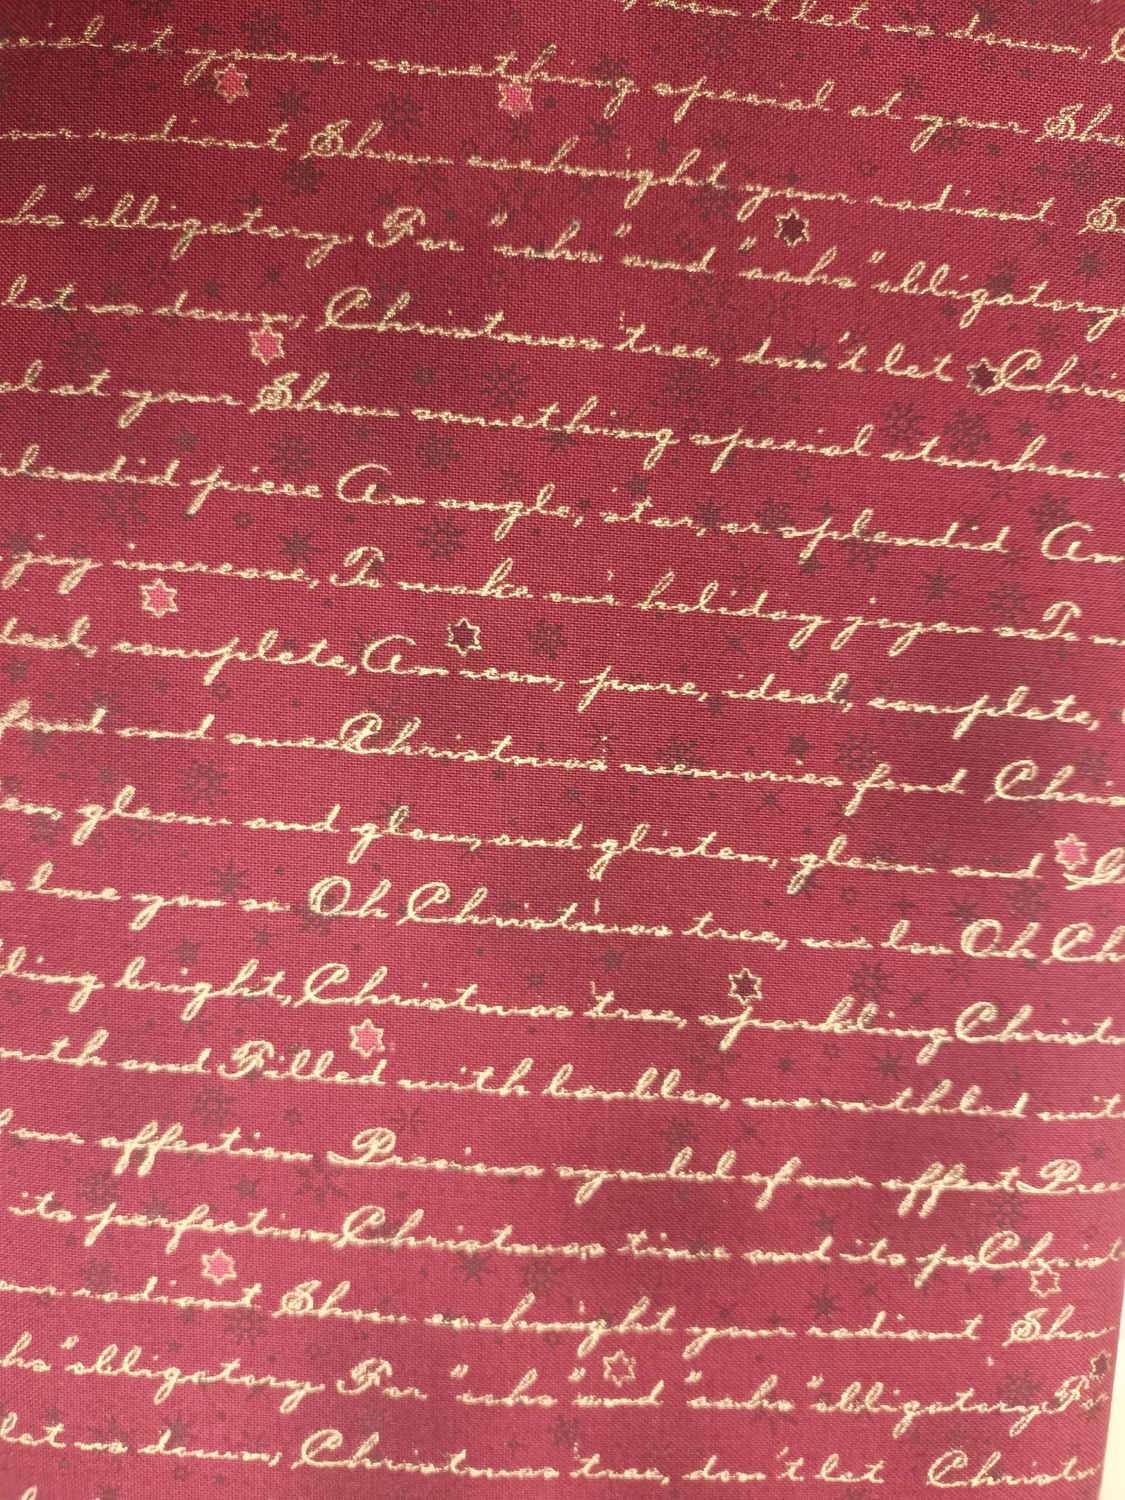 don't let us down,
at your something special at your Sho
our radiant Show each night your radiant S
ahs" obligatory For "oohs" and "aahs" obligatory
let us down, Christmas tree, don't let Chris
al at your Show something special at our how
lendid piece An angle, star, or splendid An
joy increase, To make our holiday joyon so To m
deal, complete, An icon, pure, ideal, complete,
fond and swee Christmas memories fond Chris
en, gleam and glow, and glisten, gleam and G
e love you so Oh Christmas tree, we lov Oh Ch
ling bright, Christmas tree, sparkling Christ
mth and Filled with baubles, warmth led wit
f our affection Precious symbol of our affect Prec
its perfection Christmas time and its pe Christ
our radiant Show each night your radiant Sho
hs" obligatory For "oohs" and "aahs" obligatory For
let us down, Christmas tree, don't let Christm